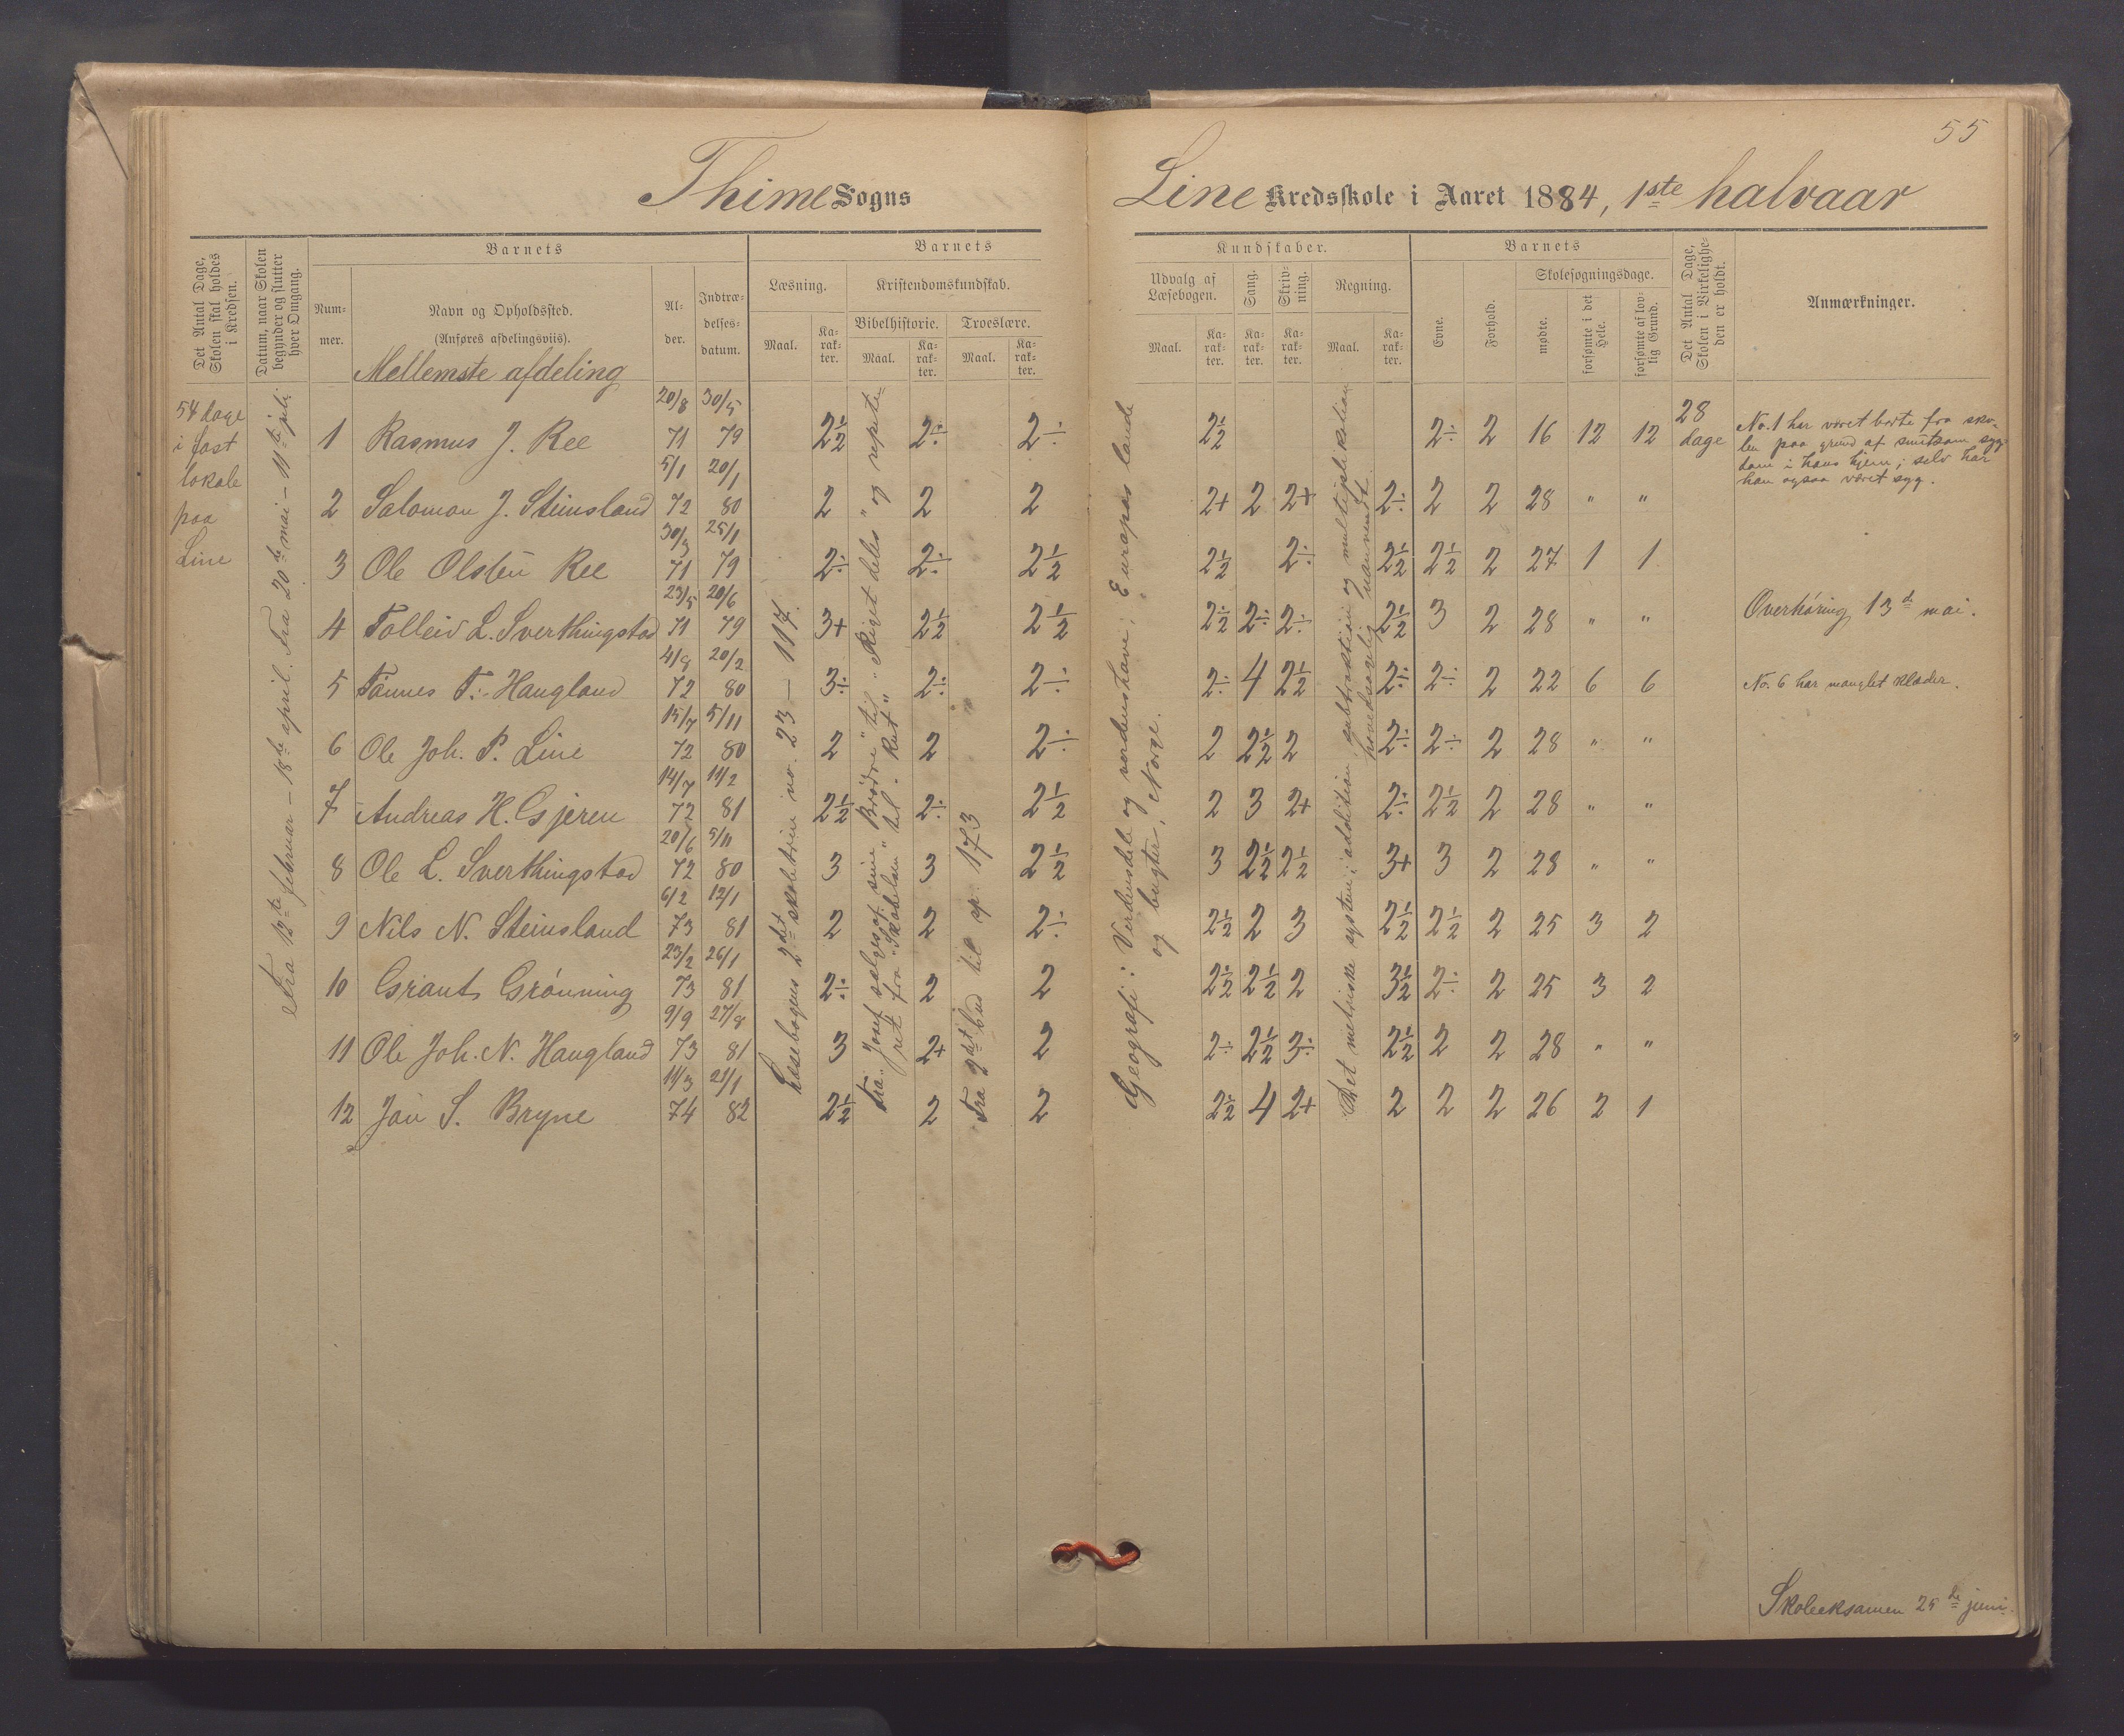 55
Thime Sogns
Line Kredsskole i Aaret 1884, 1ste halvaar
Det Antal Dage, Skolen skal holdes i Kredsen.
Datum, naar Skolen begynder og slutter hver Omgang.
Barnets
Num-
mer.
Navn og Opholdssted.
(Anføres afdelingsviis).
Al-
der.
Indtræ-
delses-
datum.
Barnets
Læsning.
Maal.
Ka-
rak-
ter.
Kristendomskundskab.
Bibelhistorie.
Maal.
Ka-
rak-
ter.
Troeslære.
Maal.
Ka-
rak-
ter.
Kundskaber.
Udvalg af
Læsebogen.
Maal.
Ka-
rak-
ter.
Sang.
Ka-
rak-
ter.
Skriv-
ning.
Ka-
rak-
ter.
Regning.
Maal.
Ka-
rak-
ter.
Barnets
Evne.
Forhold.
Skolesøgningsdage.
mødte.
forsømte i det Hele.
forsømte af lov-
lig Grund.
Det Antal Dage, Skolen i Virkelighe-
den er holdt.
Anmærkninger.
Mellemste afdeling
54 dage
i fast
lokale
paa
Line
Fra 12te februar – 18de april. Fra 20de mai – 11te juli.
Læsebogens 2det skoletrin no. 23 – 117.
Fra "Josef sælges af sine Brødre" til "Riget deles" og repete-
ret fra "Skabelsen" til "Rut"
Fra 9det bud til sp. 173
Geografi: Verdensdele og verdenshave; Europas lande
og bugter, Norge.
Det metriske system; addition, subtraktion og multiplikation
20/8 30/5
1 Rasmus J. Ree 71 79 2½ 2÷ 2÷ 2½ 2÷ 2 16 12 12 28 dage
5/1 20/1
2 Salomon J. Steinsland 72 80 2 2 2 2+ 2 2+ 2÷ 2 2 28 " "
30/3 25/1
3 Ole Olsen Ree 71 79 2÷ 2÷ 2½ 2½ 2÷ 2½ 2½ 2 27 1 1
23/5 20/6
4 Tolleiv L. Sverthingstad 71 79 3+ 2½ 2½ 2½ 2÷ 2÷ 2½ 3 2 28 " "
4/8 20/2
5 Tønnes T. Haugland 72 80 3÷ 2÷ 2÷ 2÷ 4 2½ 2÷ 2÷ 2 22 6 6
15/7 5/11
6 Ole Joh. P. Line 72 80 2 2 2÷ 2 2½ 2 2÷ 2÷ 2 28 " "
14/7 11/2
7 Andreas H. Gjeren 72 81 2½ 2÷ 2½ 2 3 2+ 2÷ 2½ 2 28 " "
20/6 5/11
8 Ole L. Sverthingstad 72 80 3 3 2½ 3 2½ 2½ 3+ 3 2 28 " "
6/2 12/1
9 Nils N. Steinsland 73 81 2 2 2÷ 2½ 2 3 2½ 2½ 2 25 3 2
23/2 26/1
10 Graut Grønning 73 81 2÷ 2 2 2½ 2½ 2 3½ 2÷ 2 25 3 2
9/9 27/8
11 Ole Joh. N. Haugland 73 81 3 2+ 2 2÷ 2½ 3÷ 2½ 2 2 28 " "
11/3 21/1
12 Jon S. Bryne 74 82 2½ 2 2 2½ 4 2+ 2 2 2 26 2 1
No. 1 har været borte fra sko-
len paa grund af smitsom syg-
dom i hans hjem; selv har
han ogsaa været syg.
Overhøring 13de mai.
No. 6 har manglet klæder.
Skoleeksamen 25de juni.